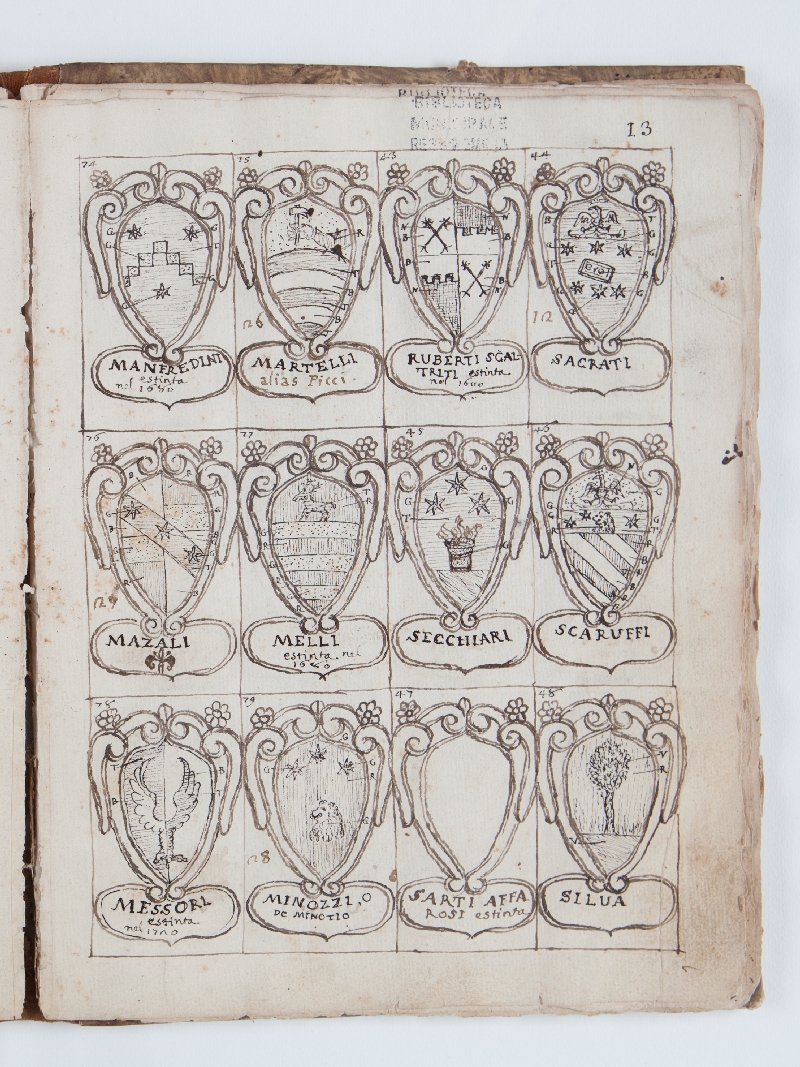 BIBLIOTECA
BIBLIOTECA
MUNICIPALE
13
74
MANFREDINI
estinta
nel 1650
75
26
MARTELLI
alias Picci
43
RUBERTI SGAL-
TRITI estinta
nel 1600
44
12
SACRATI
76
27
MAZALI
77
MELLI
estinta nel
45
SECCHIARI
46
SCARUFFI
78
MESSORI
estinta
79
28
MINOZZI, O
DE MINOTIO
47
SARTI AFFA
ROSI estinta
48
SILUA